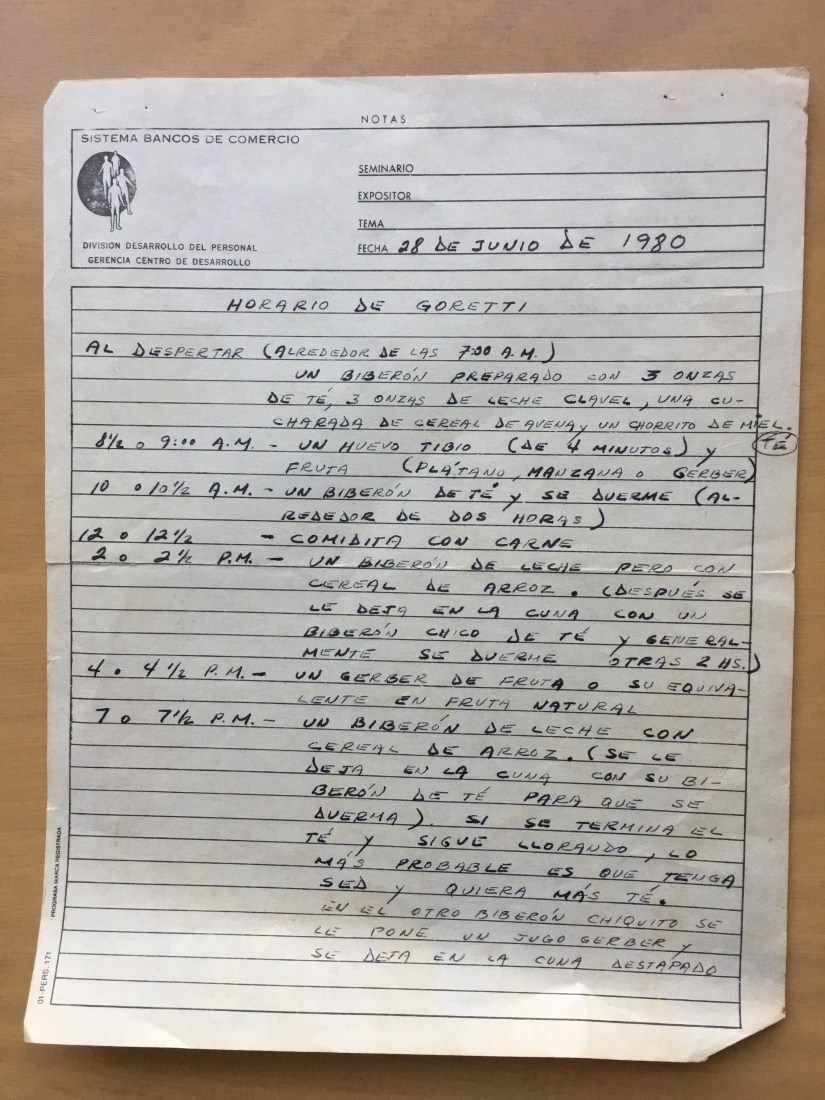 NOTAS
SISTEMA BANCOS DE COMERCIO
DIVISION DESARROLLO DEL PERSONAL
GERENCIA CENTRO DE DESARROLLO
SEMINARIO
EXPOSITOR
TEMA
FECHA 28 DE JUNIO DE 1980
HORARIO DE GORETTI
AL DESPERTAR (ALREDEDOR DE LAS 7:00 A.M.)
UN BIBERÓN PREPARADO CON 3 ONZAS
DE TÉ, 3 ONZAS DE LECHE CLAVEL, UNA CU-
CHARADA DE CEREAL DE AVENA y UN CHORRITO DE MIEL.
8½ o 9:00 A.M. - UN HUEVO TIBIO (DE 4 MINUTOS) y TÉ
FRUTA (PLÁTANO, MANZANA o GERBER)
10 o 10½ A.M. - UN BIBERÓN DE TÉ y SE DUERME (AL-
REDEDOR DE DOS HORAS)
12 o 12½ - COMIDITA CON CARNE
2 o 2½ P.M. - UN BIBERÓN DE LECHE PERO CON
CEREAL DE ARROZ. (DESPUÉS SE
LE DEJA EN LA CUNA CON UN
BIBERÓN CHICO DE TÉ y GENERAL-
MENTE SE DUERME OTRAS 2 HS.)
4 o 4½ P.M. - UN GERBER DE FRUTA o SU EQUIVA-
LENTE EN FRUTA NATURAL
7 o 7½ P.M. - UN BIBERÓN DE LECHE CON
CEREAL DE ARROZ. (SE LE
DEJA EN LA CUNA CON SU BI-
BERÓN DE TÉ PARA QUE SE
DUERMA). SI SE TERMINA EL
TÉ y SIGUE LLORANDO, LO
MÁS PROBABLE ES QUE TENGA
SED y QUIERA MÁS TÉ.
EN EL OTRO BIBERÓN CHIQUITO SE
LE PONE UN JUGO GERBER y
SE DEJA EN LA CUNA DESTAPADO
01-PERS. 171
PROGRASA MARCA REGISTRADA